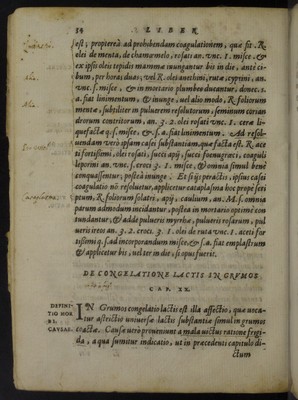 54 LIBER
est; propterea ad prohibendam coagulationem, quae sit. R.
olei de menta, de chamaemelo, rosati an. unc. 1. misce. &
ex ipsis oleis tepidis mammae inungantur bis in die, ante ci-
bum, per horas duas; vel R. olei anethini, rutae, cyprini, an.
unc. s. misce, & in mortario plumbeo ducantur, donec. s.
a. fiat linimentum, & inunge, vel alio modo, R. foliorum
mentae, subtiliter in pulverem resolutorum, seminum corian
drorum contritorum, an. 3. 2. olei rosati unc. 1. cerae li-
quefactae q. s. misce. & s. a. fiat linimentum. Ad resol-
uendam vero ipsam casei substantiam, quae facta est. R. ace
ti fortissimi, olei rosati, succi apij, succi foenugraeci, coaguli
leporini an. unc. s. croci 3. 1. misce, & omnia simul bene
conquassentur, postea inunge. Et si ijs peractis, ipsius casei
coagulatio non resoluetur, applicetur cataplasma hoc prope serj
ptum, R. foliorum solatri, apij, caulium, an. M. s. omnia
parum admodum incidantur, postea in mortario optime con
tundantur, & adde pulveris myrrhae, pulueris rosarum, pul
ueris ireos an. 3. 2. croci. 3. 1. olei de ruta unc. 1. aceti for
tissimi q. s. ad incorporandum misce, & s. a. fiat emplastrum
& applicetur bis, vel ter in die, si opus fuerit.
DE CONGELATIONE LACTIS IN GRUMOS.
CAP. XX.
DEFINI-
TIO MOR
BI.
CAUSAE.
IN Grumos congelatio lactis est illa affectio, qua voca-
tur astrictio universae lactis substantiae simul in grumos
coactae. Causae vero proveniunt a mala victus ratione frigi-
da, a qua sumitur indicatio, ut in praecedenti capitulo di-
ctum